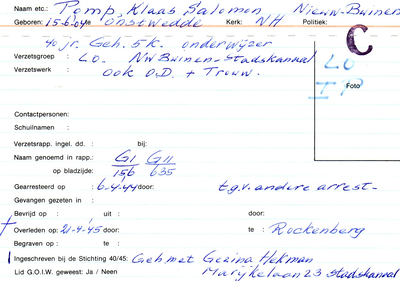 Naam etc.: Pomp, Klaas Salomon Nieuw-Buinen
Geboren: 15-6-04 te Onstwedde Kerk: NH Politiek:
40 jr. Geh. 5 K. onderwijzer
C
Verzetsgroep : LO. NwBuinen-Stadskanaal
LO
Verzetswerk : ook O.D. + Trouw.
Foto
Contactpersonen:
Schuilnamen :
Verzetsrapp. ingel. dd. : bij:
Naam genoemd in rapp.: GI GII
op bladzijde: 156 635
Gearresteerd op : 6-4-44 door: t.g.v. andere arrest-
Gevangen gezeten in :
Bevrijd op : uit : door:
† Overleden op: 21-4-45 door: te : Rockenberg
Begraven op : te :
Ingeschreven bij de Stichting 40/45: Geh met Gezina Hekman
Lid G.O.I.W. geweest: Ja / Neen Marijkelaan 23 Stadskanaal